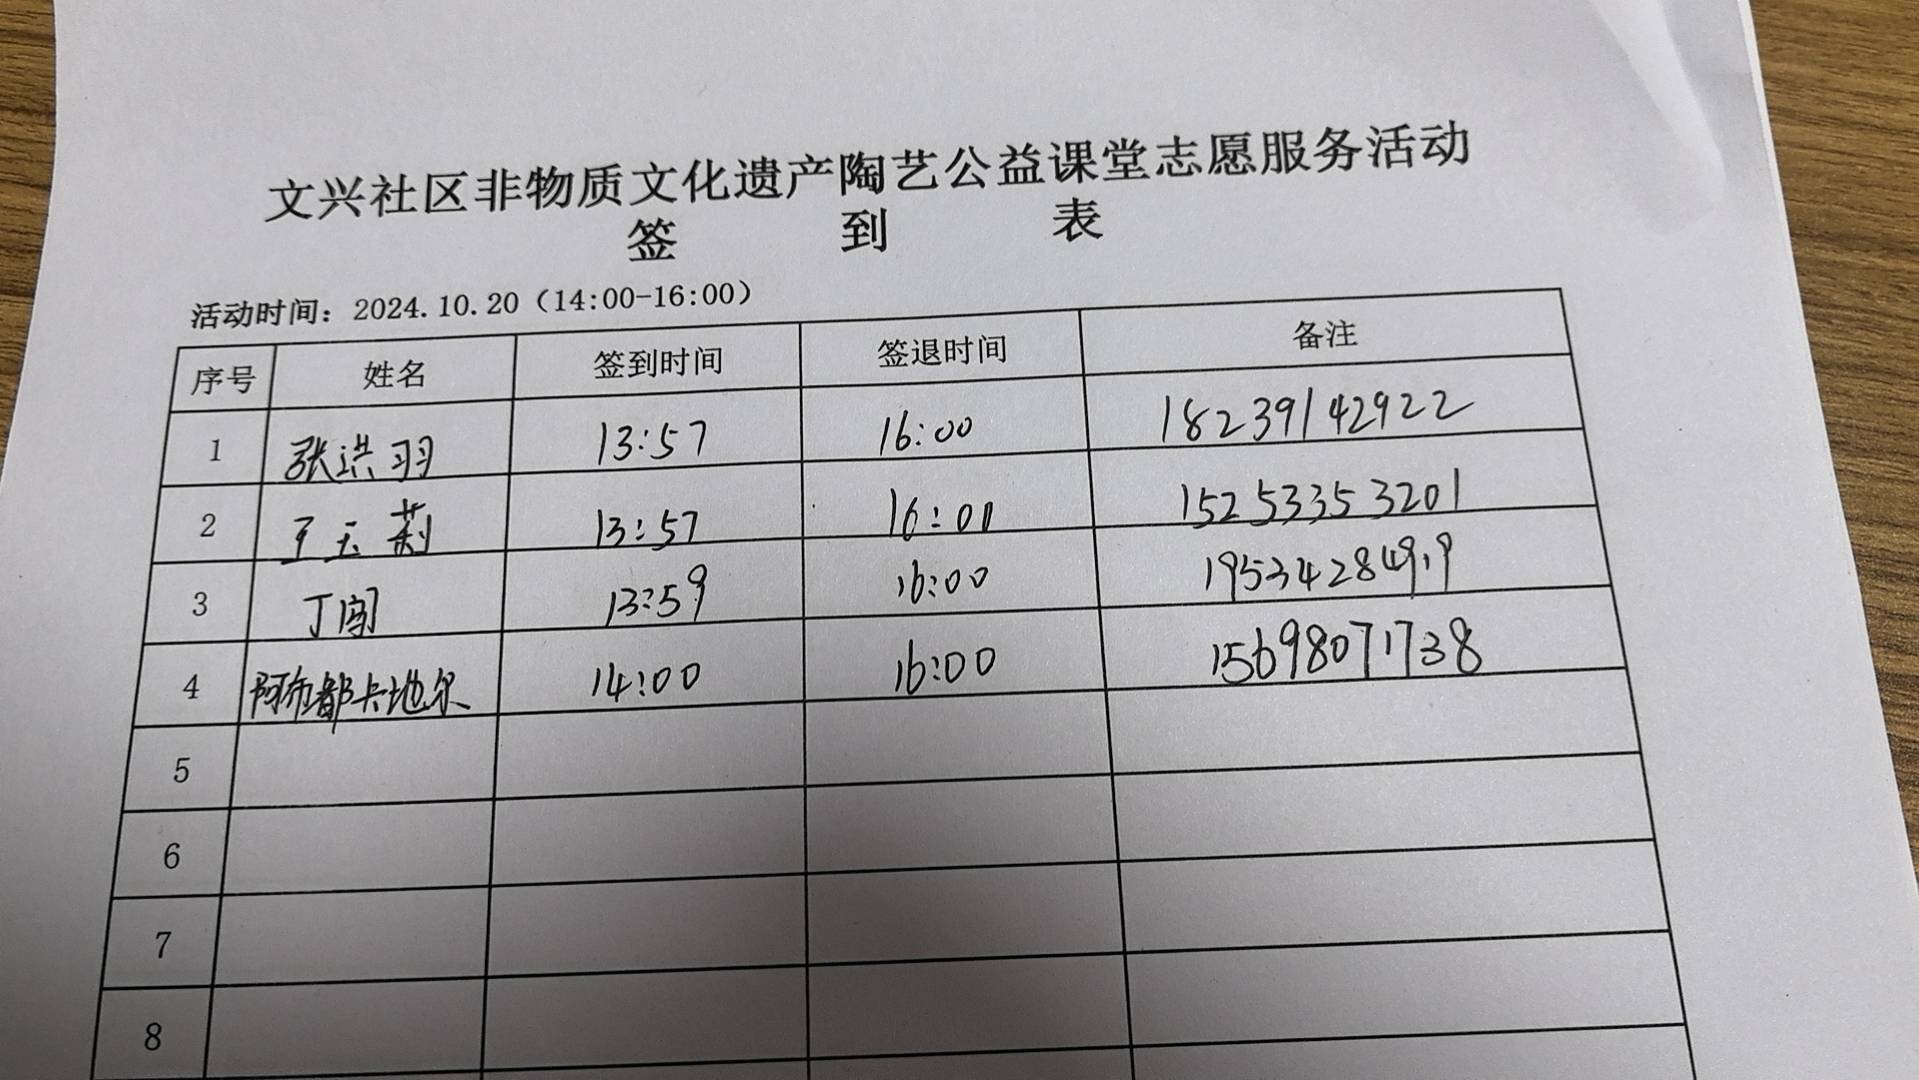 文兴社区非物质文化遗产陶艺公益课堂志愿服务活动
签 到 表
活动时间：2024.10.20（14:00-16:00）
序号 姓名 签到时间 签退时间 备注
1 张洪羽 13:57 16:00 18239142922
2 王玉莉 13:57 16:01 15253353201
3 丁闯 13:59 16:00 19534284919
4 阿布都卡地尔 14:00 16:00 15698071738
5
6
7
8